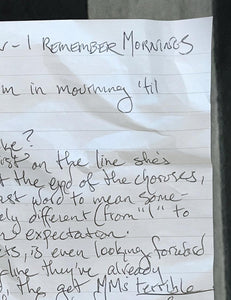 - I REMEMBER MORNINGS
in mourning 'til
ike?
on the line she's
the end of the choruses,
last word to mean some-
ely different (from "I" to
expectation.
is even looking forward
they've already
the get MMs terrible